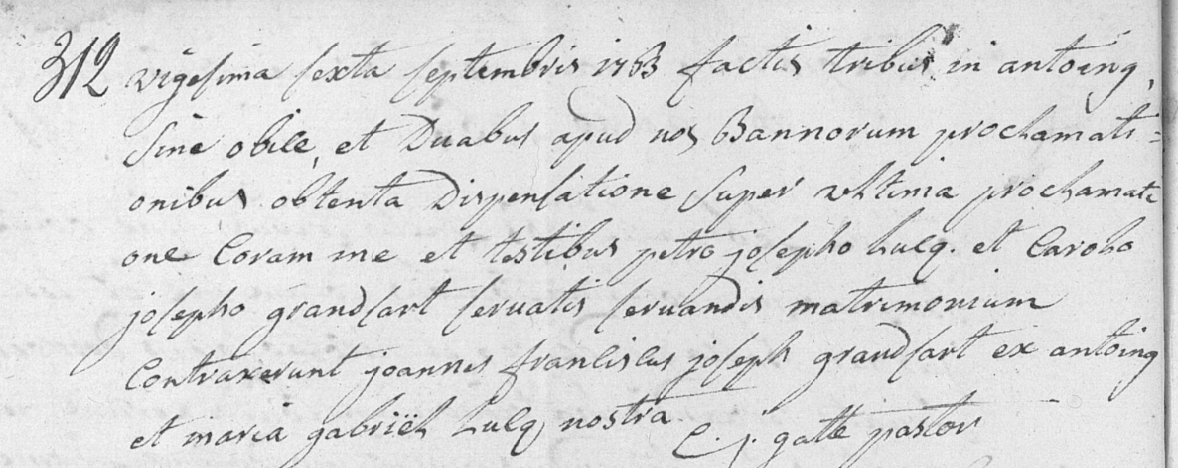 312 vigesima sexta septembris 1763 factis tribus in antoing,
sine obice, et Duabus apud nos Bannorum proclamati=
onibus obtenta Dispensatione super ultima proclamati
one Coram me et testibus petro josepho Lucq. et Carolo
josepho grandsart servatis servandis matrimonium
Contraxerunt joannes franciscus joseph grandsart ex antoing
et maria gabriël Lucq nostra.
C. j. gatte pastor